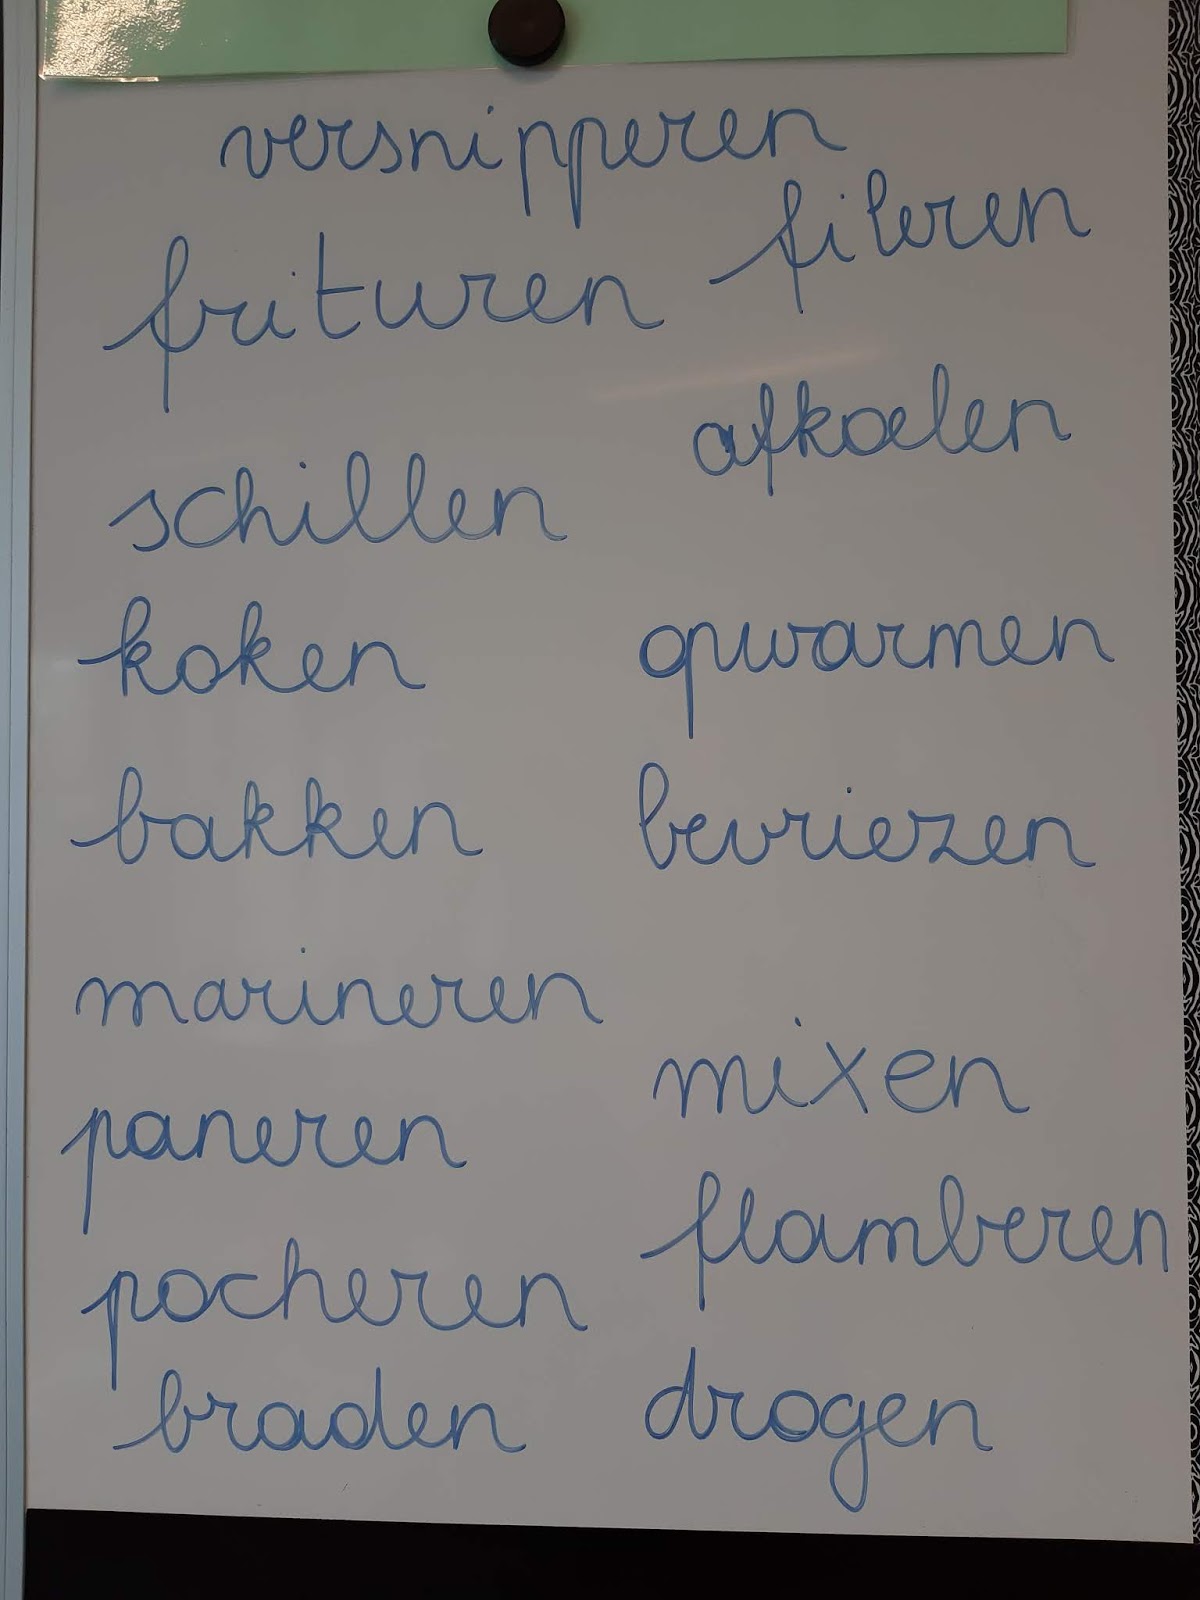 versnipperen
fileren
frituren
afkoelen
schillen
koken
opwarmen
bakken
bevriezen
marineren
mixen
paneren
flamberen
pocheren
braden
drogen